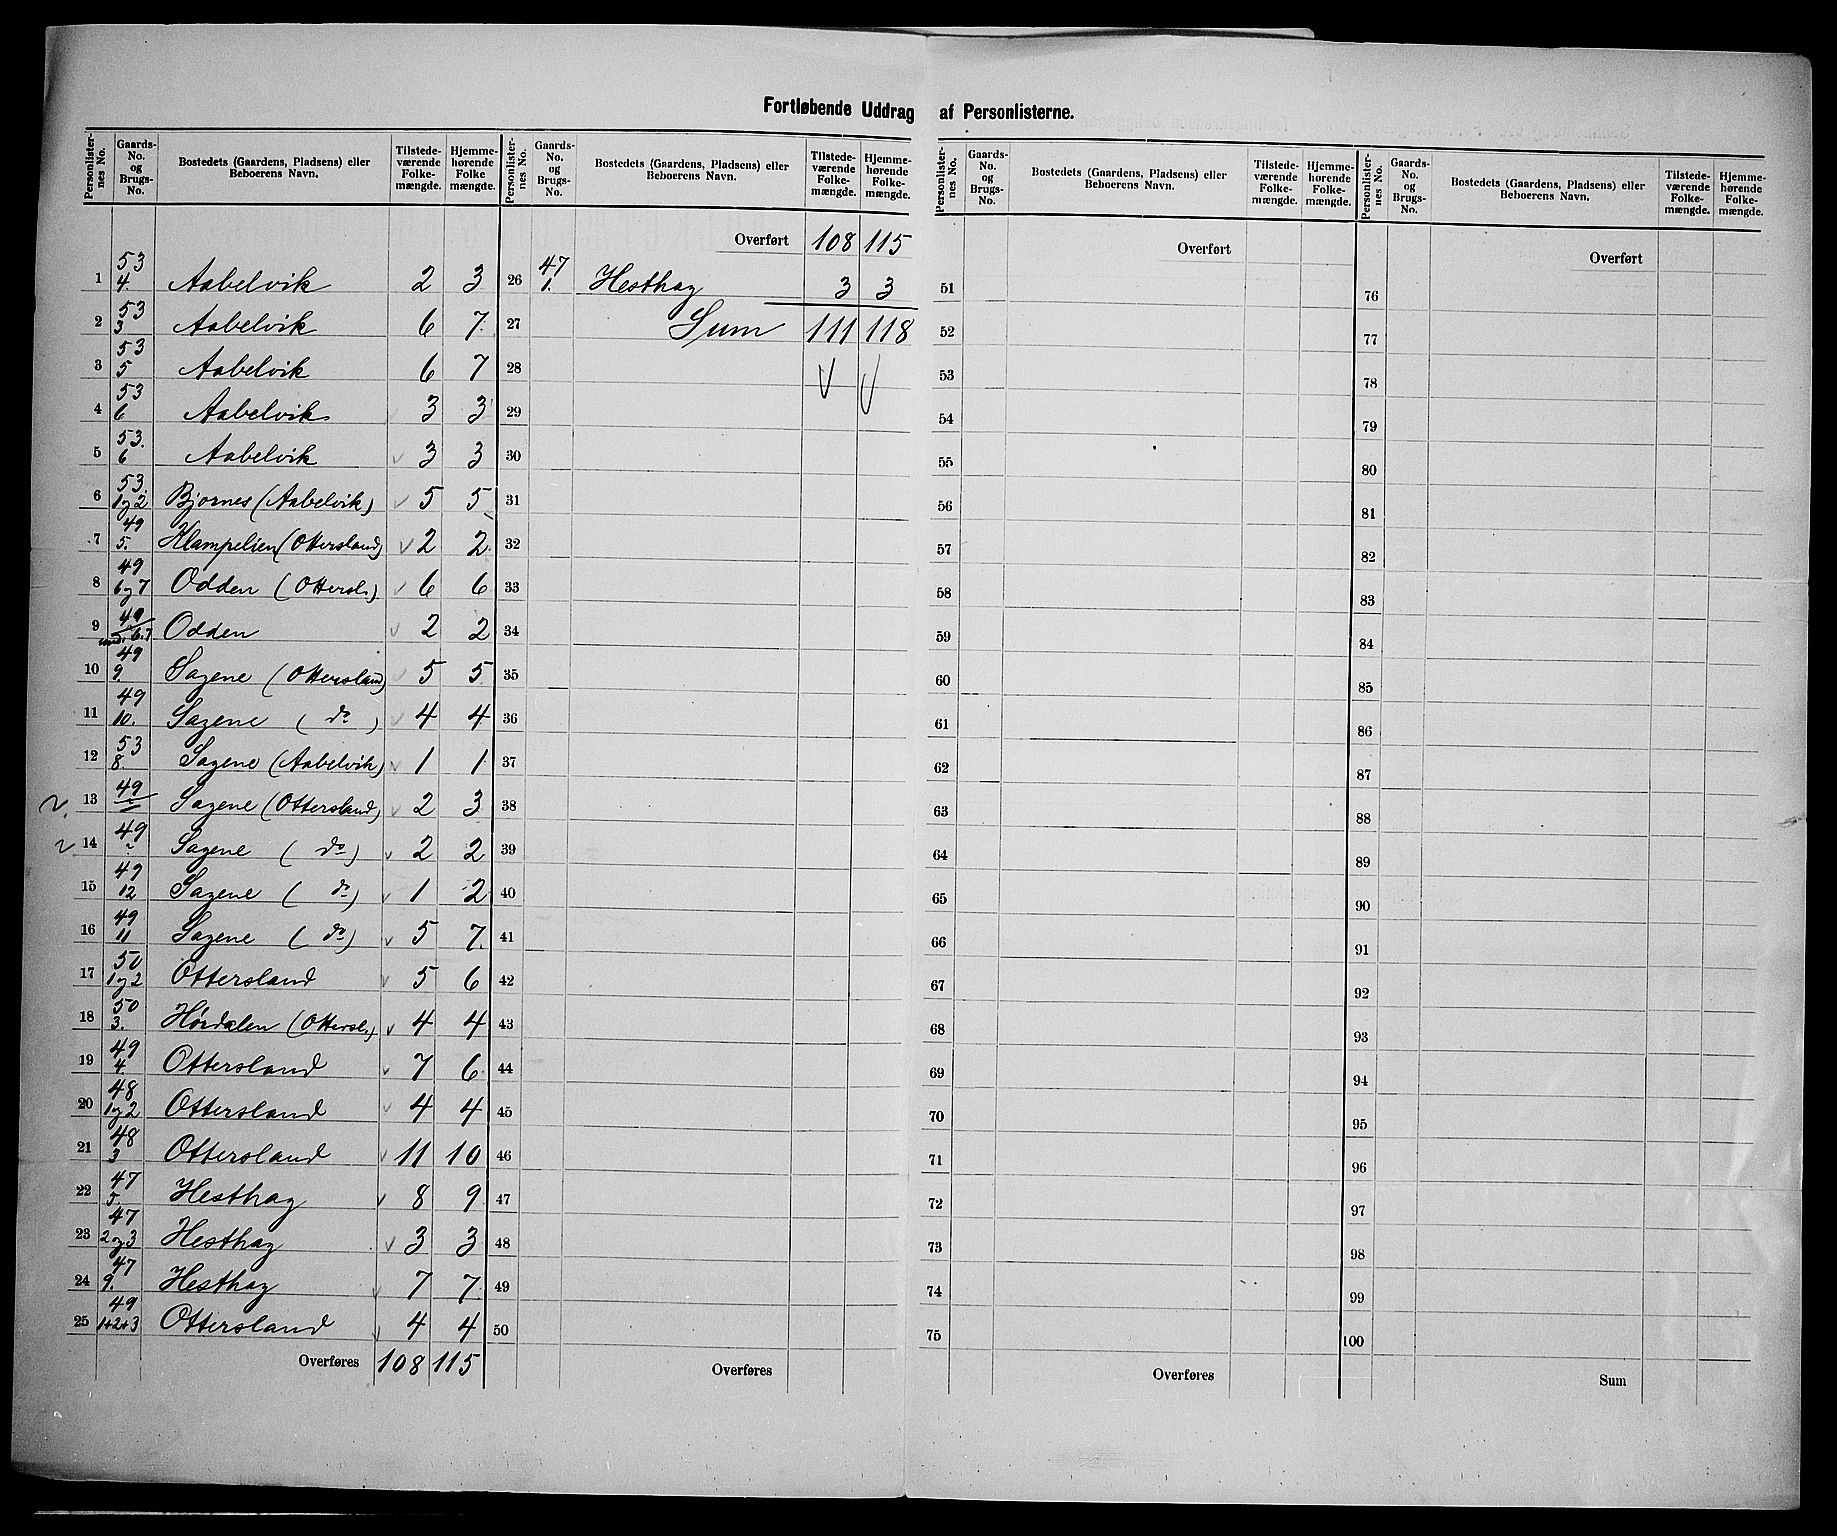 Fortløbende Uddrag af Personlisterne.
Personlister-nes No. | Gaards-No. og Brugs-No. | Bostedets (Gaardens, Pladsens) eller Beboerens Navn. | Tilstede-værende Folke-mængde. | Hjemme-hørende Folke mængde.
1 | 53 4. | Aabelvik | 2 | 3
2 | 53 3 | Aabelvik | 6 | 7.
3 | 53 5 | Aabelvik | 6 | 7
4 | 53 6 | Aabelvik | 3 | 3
5 | 53. 6 | Aabelvik | 3 | 3
6 | 53. 1og2 | Bjørnes (Aabelvik) | 5 | 5
7 | 49 5. | Klampelien (Ottersland) | 2 | 2
8 | 49 6og7 | Odden (Ottersl.) | 6 | 6
9 | 49 und. 6.7 | Odden | 2 | 2
10 | 49 9. | Sagene (Ottersland) | 5 | 5
11 | 49 10. | Sagene (do) | 4 | 4
12 | 53 8. | Sagene (Aabelvik) | 1 | 1
13 | 49 | Sagene (Ottersland) | 2 | 3
14 | 49 | Sagene (do) | 2 | 2
15 | 49 12 | Sagene (do) | 1 | 2
16 | 49 11 | Sagene (do) | 5 | 7.
17 | 50 1og2 | Ottersland | 5 | 6
18 | 50 3. | Hørdalen (Ottersl.) | 4 | 4
19 | 49 4. | Ottersland | 7 | 6
20 | 48 1og2 | Ottersland | 4 | 4
21 | 48 3 | Ottersland | 11 | 10
22 | 47 5. | Hesthag | 8 | 9
23 | 47 2og3 | Hesthag | 3 | 3
24 | 47 9. | Hesthag | 7 | 7
25 | 49 1+2+3 | Ottersland | 4 | 4
Overføres 108 115
Personlister-nes No. | Gaards-No. og Brugs-No. | Bostedets (Gaardens, Pladsens) eller Beboerens Navn. | Tilstede-værende Folke-mængde. | Hjemme-hørende Folke-mængde.
Overført 108 115
26 | 47 1. | Hesthag | 3 | 3
27 Sum 111 118
28
29
30
31
32
33
34
35
36
37
38
39
40
41
42
43
44
45
46
47
48
49
50
Overføres
Personlister-nes No. | Gaards-No. og Brugs-No. | Bostedets (Gaardens, Pladsens) eller Beboerens Navn. | Tilstede-værende Folke-mængde. | Hjemme-hørende Folke-mængde.
Overført
51
52
53
54
55
56
57
58
59
60
61
62
63
64
65
66
67
68
69
70
71
72
73
74
75
Overføres
Personlister-nes No. | Gaards-No. og Brugs-No. | Bostedets (Gaardens, Pladsens) eller Beboerens Navn. | Tilstede-værende Folke-mængde. | Hjemme-hørende Folke-mængde.
Overført
76
77
78
79
80
81
82
83
84
85
86
87
88
89
90
91
92
93
94
95
96
97
98
99
100
Sum